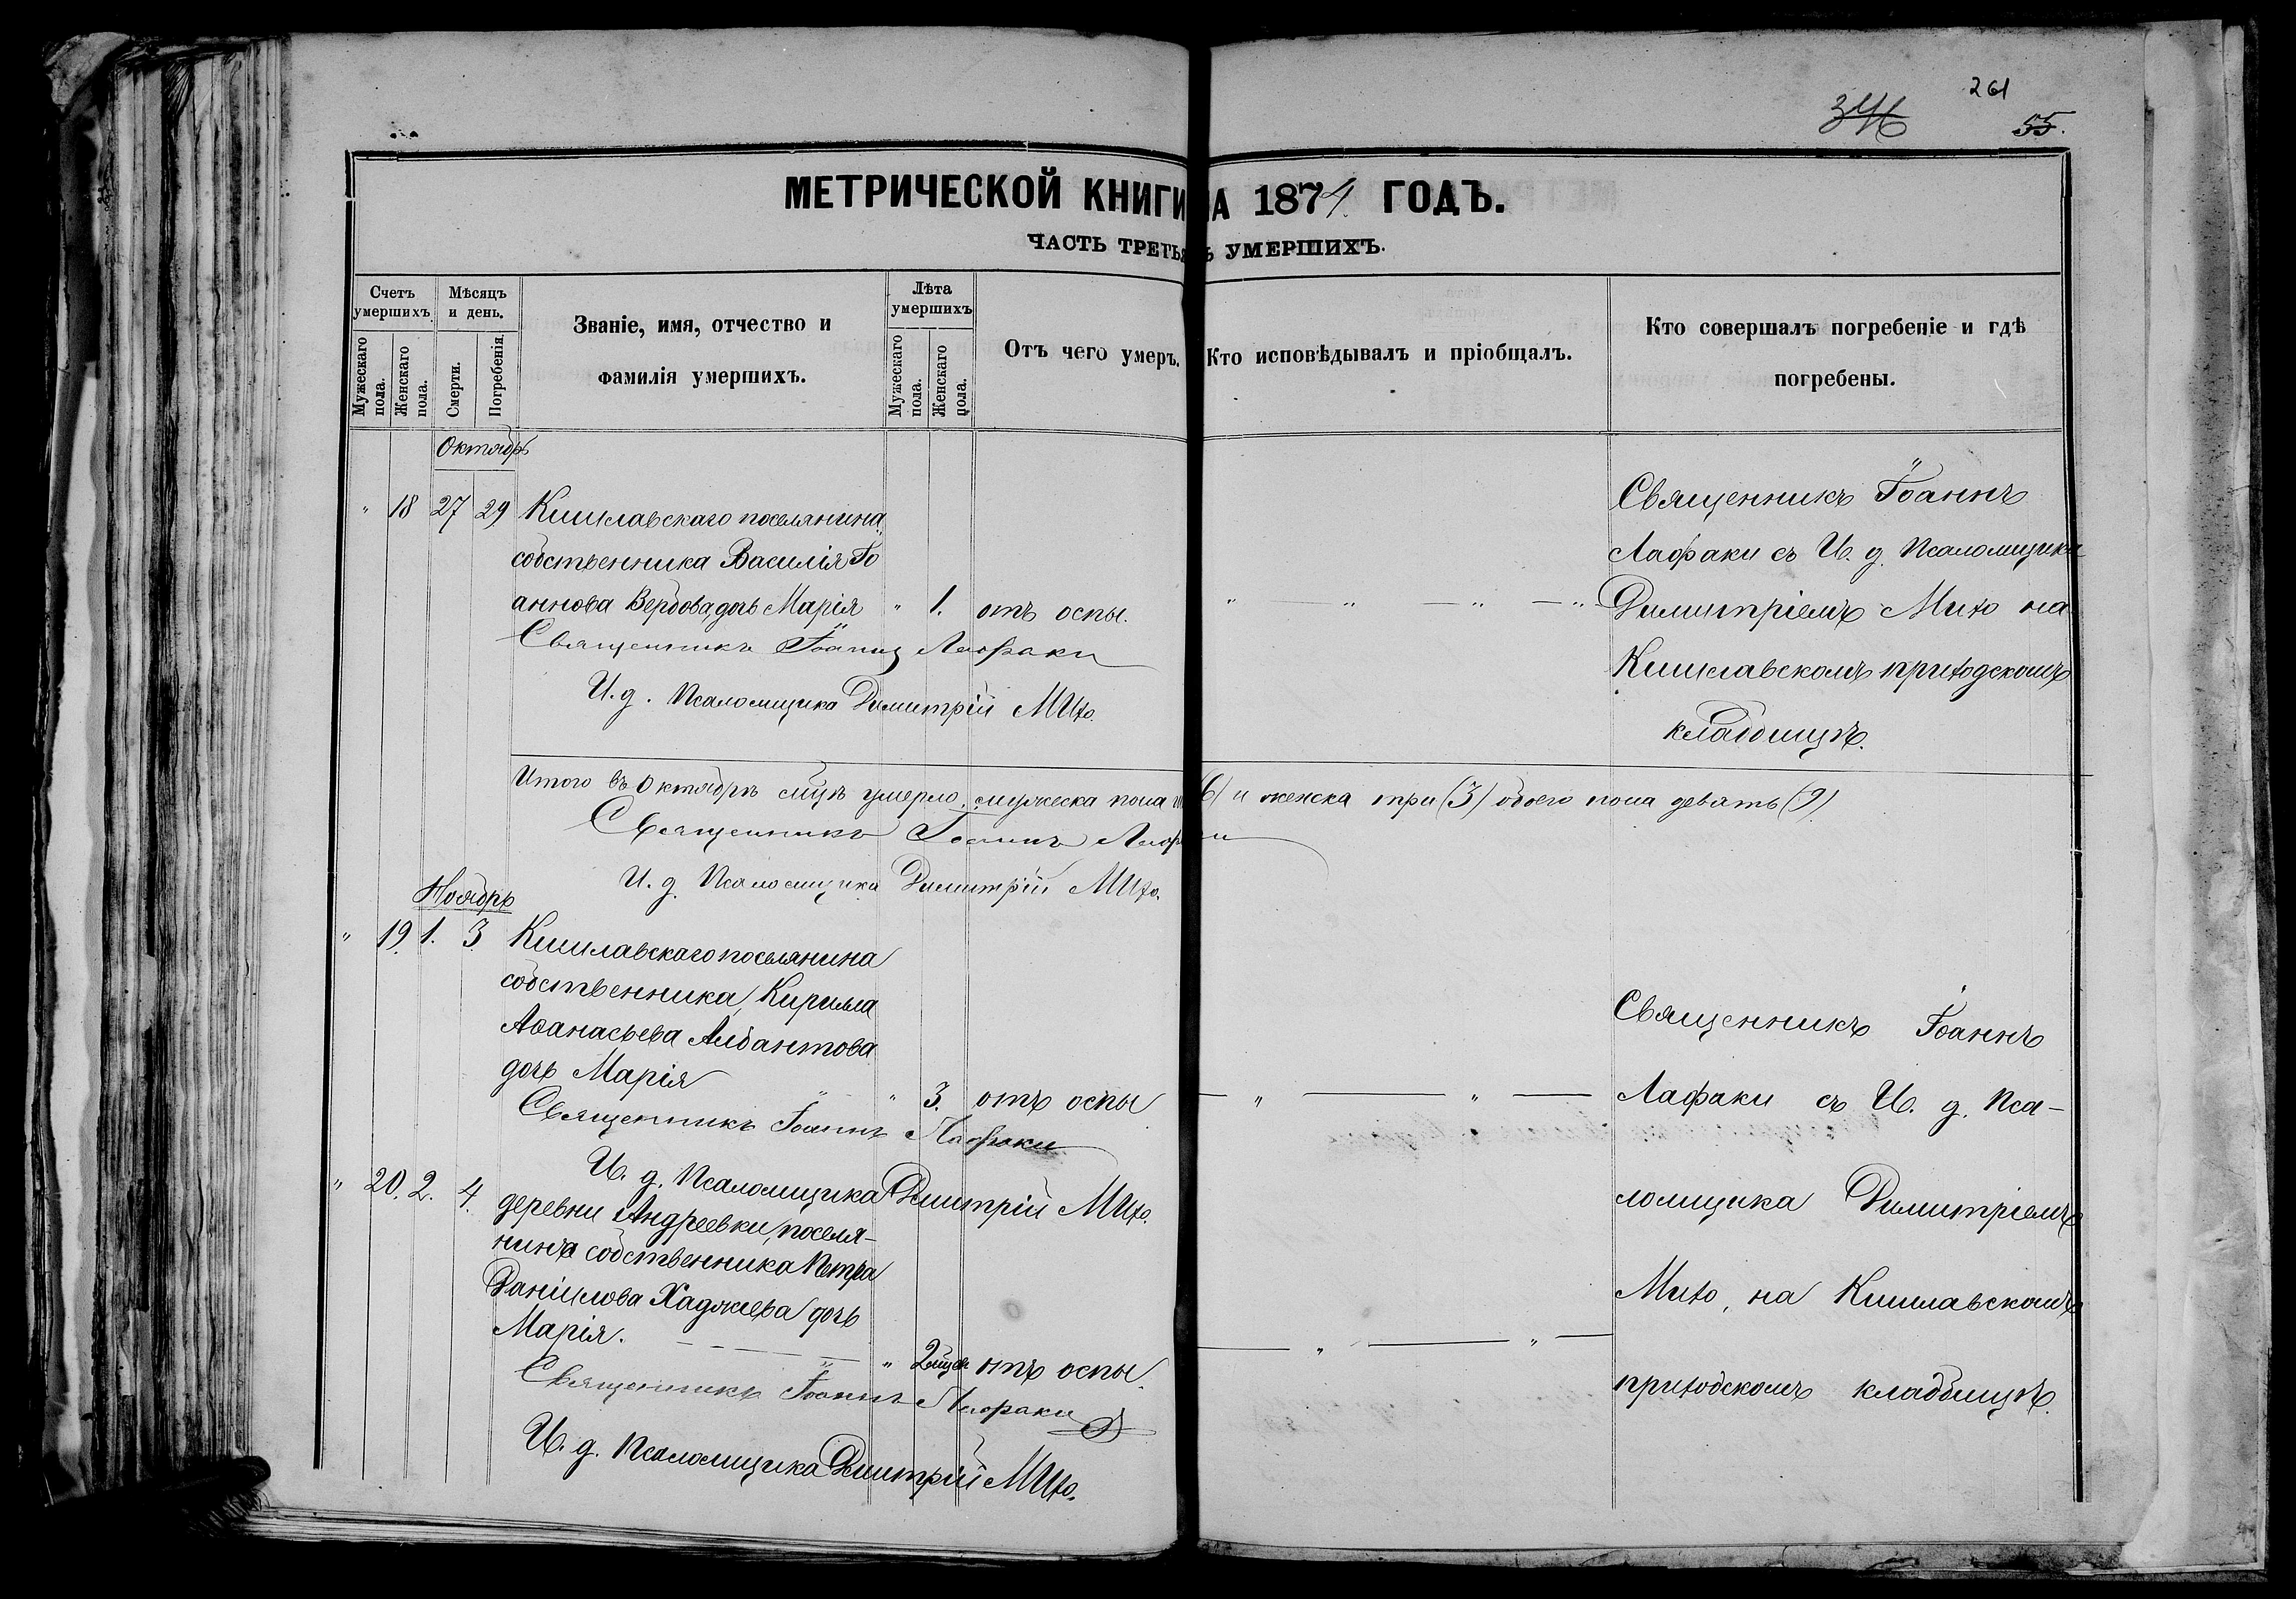 261
346
55.
МЕТРИЧЕСКОЙ КНИГИ НА 1874 ГОДЪ.
ЧАСТЬ ТРЕТЬЯ УМЕРШИХЪ.
Счетъ умершихъ.
Мужескаго пола.
Женскаго пола.
Мѣсяцъ и день.
Смерти.
Погребенія.
Званіе, имя, отчество и
фамилія умершихъ.
Лѣта умершихъ
Мужескаго пола.
Женскаго пола.
Отъ чего умеръ.
Кто исповѣдывалъ и пріобщалъ.
Кто совершалъ погребеніе и гдѣ
погребены.
Октябрь
" 18 27 29 Кишлавскаго поселянина
собственника Василія Іо
аннова Вербова, дочь Марія " 1. отъ оспы. " — " — " — "
Священникъ Іоаннъ Лафаки
И. д. Псаломщика Димитрій Михо.
Священникъ Іоаннъ
Лафаки съ И. д. Псаломщика
Димитріемъ Михо на
Кишлавскомъ приходскомъ
кладбищѣ.
Итого въ Октябрѣ м̃цѣ умерло мужеска пола (6) и женска три (3) обоего пола девять (9)
Священникъ Іоаннъ Лафаки
И. д. Псаломщика Димитрій Михо.
Ноябрь
" 19. 1. 3. Кишлавскаго поселянина
собственника, Кирилла
Аѳанасьева Албантова
дочь Марія " 3. отъ оспы — " — " —
Священникъ Іоаннъ Лафаки
И. д. Псаломщика Димитрій Михо.
" 20. 2. 4. деревни Андреевки, поселя-
нина собственника Петра
Даніилова Хаджиева дочь
Марія. — " 2 мѣся отъ оспы. — " — " —
Священникъ Іоаннъ Лафаки
И. д. Псаломщика Димитрій Михо.
Священникъ Іоаннъ
Лафаки съ И. д. Пса-
ломщика Димитріемъ
Михо, на Кишлавскомъ
приходскомъ кладбищѣ.